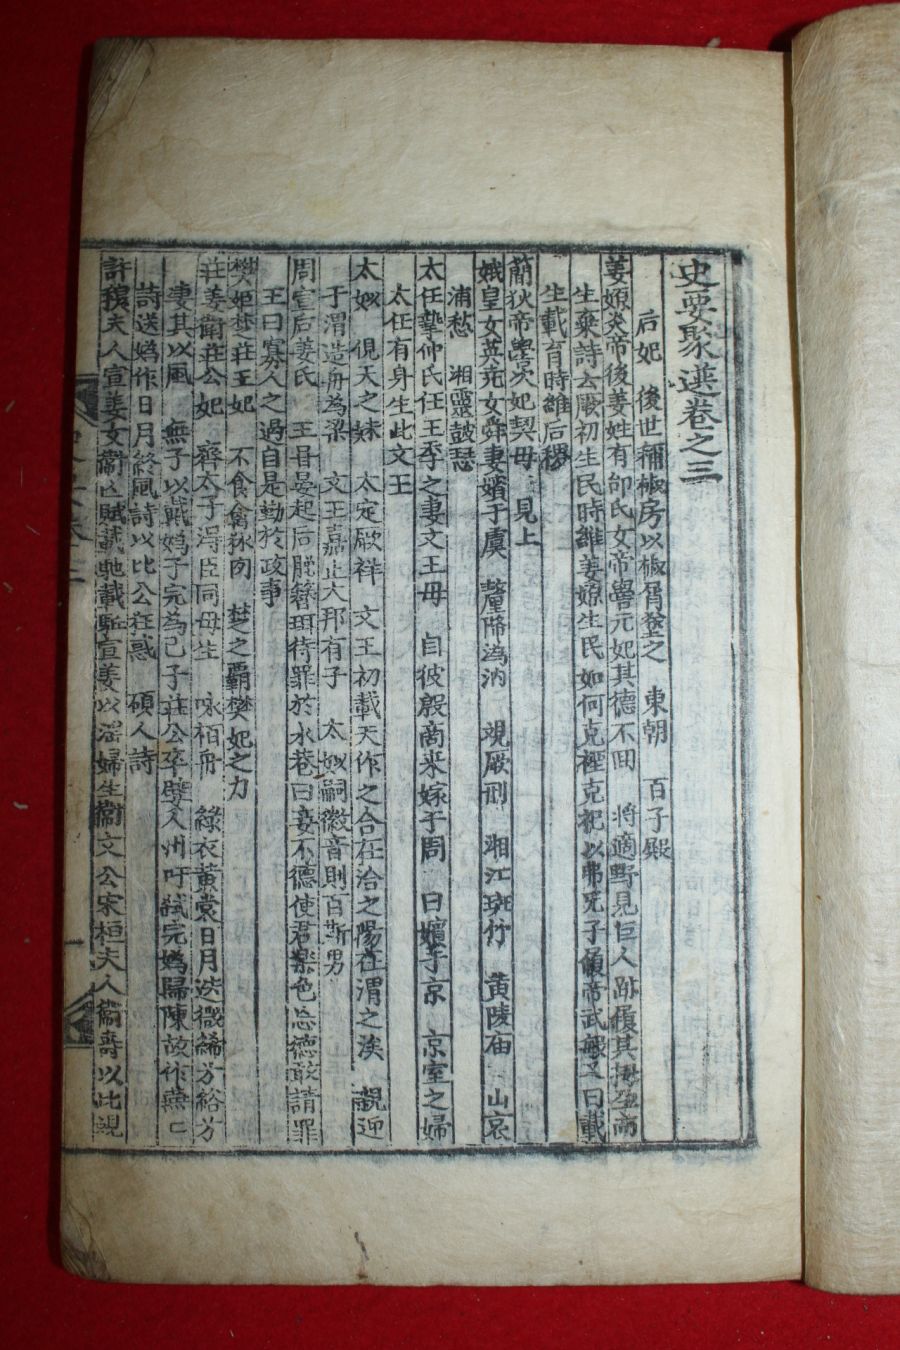 史要聚選卷之三
后妃 後世稱椒房以椒屑塗之 東朝 百子殿
姜嫄炎帝後姜姓有邰氏女帝嚳元妃其德不回 將適野見巨人跡履其拇至而
生棄詩云厥初生民時維姜嫄生民如何克禋克祀以弗无子履帝武敏又曰載
生載育時維后稷
簡狄帝嚳次妃契母 見上
娥皇女英堯女舜妻嬪于虞 釐降溈汭 覌厥刑 湘江斑竹 黄陵庙 山哀
浦愁 湘靈鼓瑟
太任摯仲氏任王季之妻文王母 自彼殷商來嫁于周 曰嬪于京 京室之婦
太任有身生此文王
太姒 俔天之妹 太定厥祥 文王初載天作之合在洽之陽在渭之涘 親迎
于渭造舟為梁 文王嘉止大邦有子 太姒嗣徽音則百斯男
周宣后姜氏 王甞晏起后脫簪珥待罪於永巷曰妾不德使君樂色忘德敢請罪
王曰寡人之過自是勤於政事
樊姬楚莊王妃 不食禽獸肉 楚之覇樊妃之力
莊姜衛莊公妃 齊太子淂臣同母生 咏栢舟 綠衣黄裳日月迭微絺兮綌兮
妻其以風 無子以戴嬀子完為己子莊公卒嬖人州吁弑完嬀歸陳故作燕二
詩送嬀作日月終風詩以比公狂惑 碩人詩
許穆夫人宣姜女衛亡賦載馳載駈宣姜以淫婦生衛文公宋桓夫人衛壽以此覌